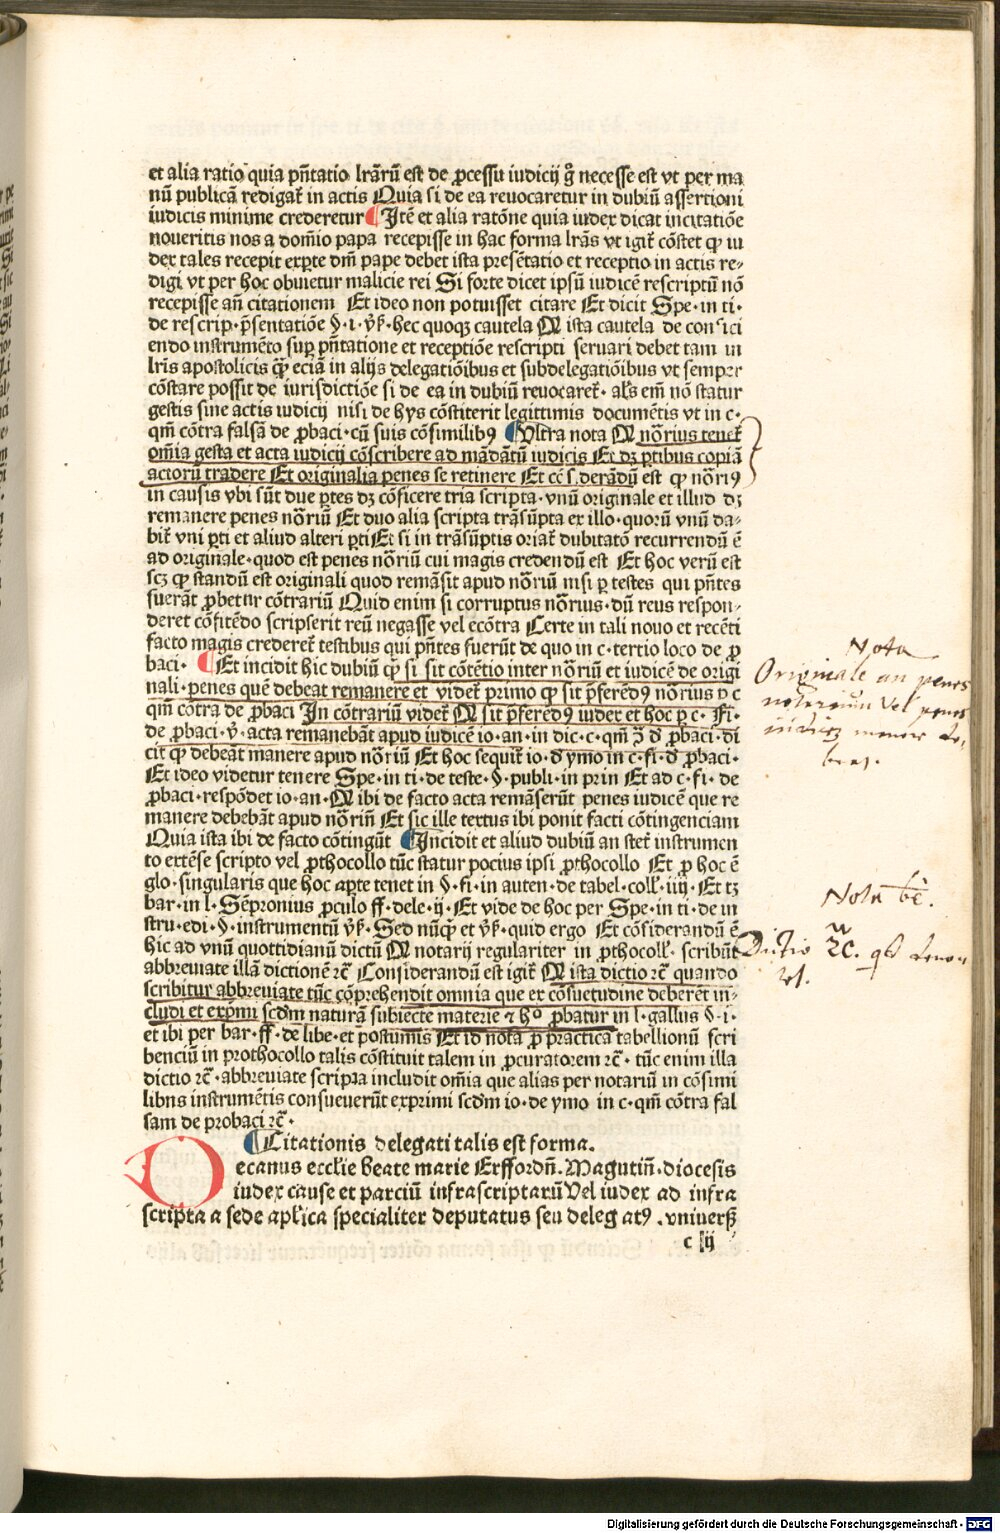 et alia ratio quia pñtatio lrãrũ est de ꝓcessu iudicij g̊ necesse est vt per ma
nũ publicã redigat᷑ in actis Quia si de ea reuocaretur in dubiũ assertioni
iudicis minime crederetur ¶Itẽ et alia ratõne quia iudex dicat in citatiõe
noueritis nos a domĩo papa recepisse in hac forma lrãs vt igit᷑ cõstet ꝙ iu
dex tales recepit ex ꝑte dñi pape debet ista presẽtatio et receptio in actis re⸗
digi vt per hoc obuietur malicie rei Si forte dicet ipsũ iudicẽ rescriptũ nõ
recepisse añ citationem Et ideo non potuisset citare Et dicit Spe·in ti·
de rescrip·p̃sentatiõe §·i·ꝟ·hec quoqꝫ cautela N ista cautela de confici
endo instrumẽto suꝑ pñtatione et receptiõe rescripti seruari debet tam in
lr̃is apostolicis ꝙ̃ eciã in alijs delegatiõibus et subdelegatiõibus vt semper
cõstare possit de iurisdictiõe si de ea in dubiũ reuocaret᷑· als em̃ nõ statur
gestis sine actis iudicij nisi de hys cõstiterit legittimis documẽtis vt in c·
qm̃ cõtra falsã de ꝓbaci·cũ suis cõsimilibꝰ ¶Vltra nota N nõrius tenet᷑
om̃ia gesta et acta iudicij cõscribere ad mãdãtũ iudicis Et dꝫ ꝑtibus copiã
actorũ tradere Et originalia penes se retinere Et cẽ s.derãdũ est ꝙ nõriꝰ
in causis vbi sũt due ꝑtes dꝫ cõficere tria scripta·vnũ originale et illud dꝫ
remanere penes nõriũ Et duo alia scripta trãsũpta ex illo·quorũ vnũ da⸗
bit᷑ vni ꝑti et aliud alteri ꝑti Et si in trãsũptis oriat᷑ dubitatõ recurrendũ ẽ
ad originale·quod est penes nõriũ cui magis credendũ est Et hoc verũ est
scꝫ ꝙ standũ est originali quod remãsit apud nõriũ nisi ꝑ testes qui pñtes
fuerãt ꝓbetur cõtrariũ Quid enim si corruptus nõrius·dũ reus respon⸗
deret cõfitẽdo scripserit reũ negasse vel ecõtra Certe in tali nouo et recẽti
facto magis crederet᷑ testibus qui pñtes fuerũt de quo in c·tertio loco de ꝓ
baci· ¶Et incidit hic dubiũ ꝙ si sit cõtẽtio inter nõriũ et iudicẽ de origi
nali·penes quẽ debeat remanere et videt᷑ primo ꝙ sit p̃ferẽdꝰ nõrius p c
qm̃ cõtra de ꝓbaci In cõtrariũ videt᷑ N sit p̃ferẽdꝰ iudex et hoc ꝑ c·fi·
de ꝓbaci·ꝟ·acta remanebãt apud iudicẽ io·an·in dic·c·qm̃ ꝯ̃ d̃ ꝓbaci·di
cit ꝙ debeãt manere apud nõriũ Et hoc sequit᷑ io·d̃ ymo in c·fi·d̃ ꝓbaci·
Et ideo videtur tenere Spe·in ti·de teste·§·publi·in prin Et ad c·fi·de
ꝓbaci·respõdet io·an·N ibi de facto acta remãserũt penes iudicẽ que re
manere debebãt apud nõriũ Et sic ille tertus ibi ponit facti cõtingenciam
Quia ista ibi de facto cõtingũt ¶Incidit et aliud dubiũ an stet᷑ instrumen
to extẽse scripto vel ꝓthocollo tũc statur pocius ipsi ꝓthocollo Et ꝓ hoc ẽ
glo·singularis que hoc aꝑte tenet in §·fi·in auten·de tabel·coll᷑·iiij·Et tꝫ
bar·in l·Sẽpronius ꝓculo ff·dele·ij·Et vide de hoc per Spe·in ti·de in
stru·edi·§·instrumentũ ꝟ·Sed nũqͥd et ꝟ·quid ergo Et cõsiderandũ ẽ
hic ad vnũ quottidianũ dictũ N notarij regulariter in ꝓthocoll᷑·scribũt
abbreuiate illã dictionẽ ⁊c̃ Considerandũ est igit᷑ N ista dictio ⁊c̃ quando
scribitur abbreuiate tũc cõprehendit omnia que ex cõsuetudine deberẽt in⸗
cludi et exp̃mi scd̃m naturã subiecte materie ⁊ hͦ ꝓbatur in l·gallus §·i·
et ibi per bar·ff·de libe·et postumis Et id nota ꝓ practica tabellionũ scri
benciũ in prothocollo talis cõstituit talem in ꝓcuratorem ⁊c̃·tũc enim illa
dictio ⁊c̃·abbreuiate scripta includit om̃ia que alias per notariũ in cõsimi
libus instrumẽtis consueuerũt exprimi scd̃m io·de ymo in c·qm̃ cõtra fal
sam de probaci ⁊c̃·
¶Citationis delegati talis est forma.
Decanus ecclĩe beate marie Erffordñ.Magutiñ.diocesis
iudex cause et parciũ infrascriptarũ Vel iudex ad infra
scripta a sede apl̃ica specialiter deputatus seu delegatꝰ.vniuersꝭ
c iij
Nota
Originale an penes
notarium vel penes
iudicẽ manere de⸗
beat.
Nota bẽ.
Dictio ⁊c. qd
Digitalisierung gefördert durch die Deutsche Forschungsgemeinschaft - DFG